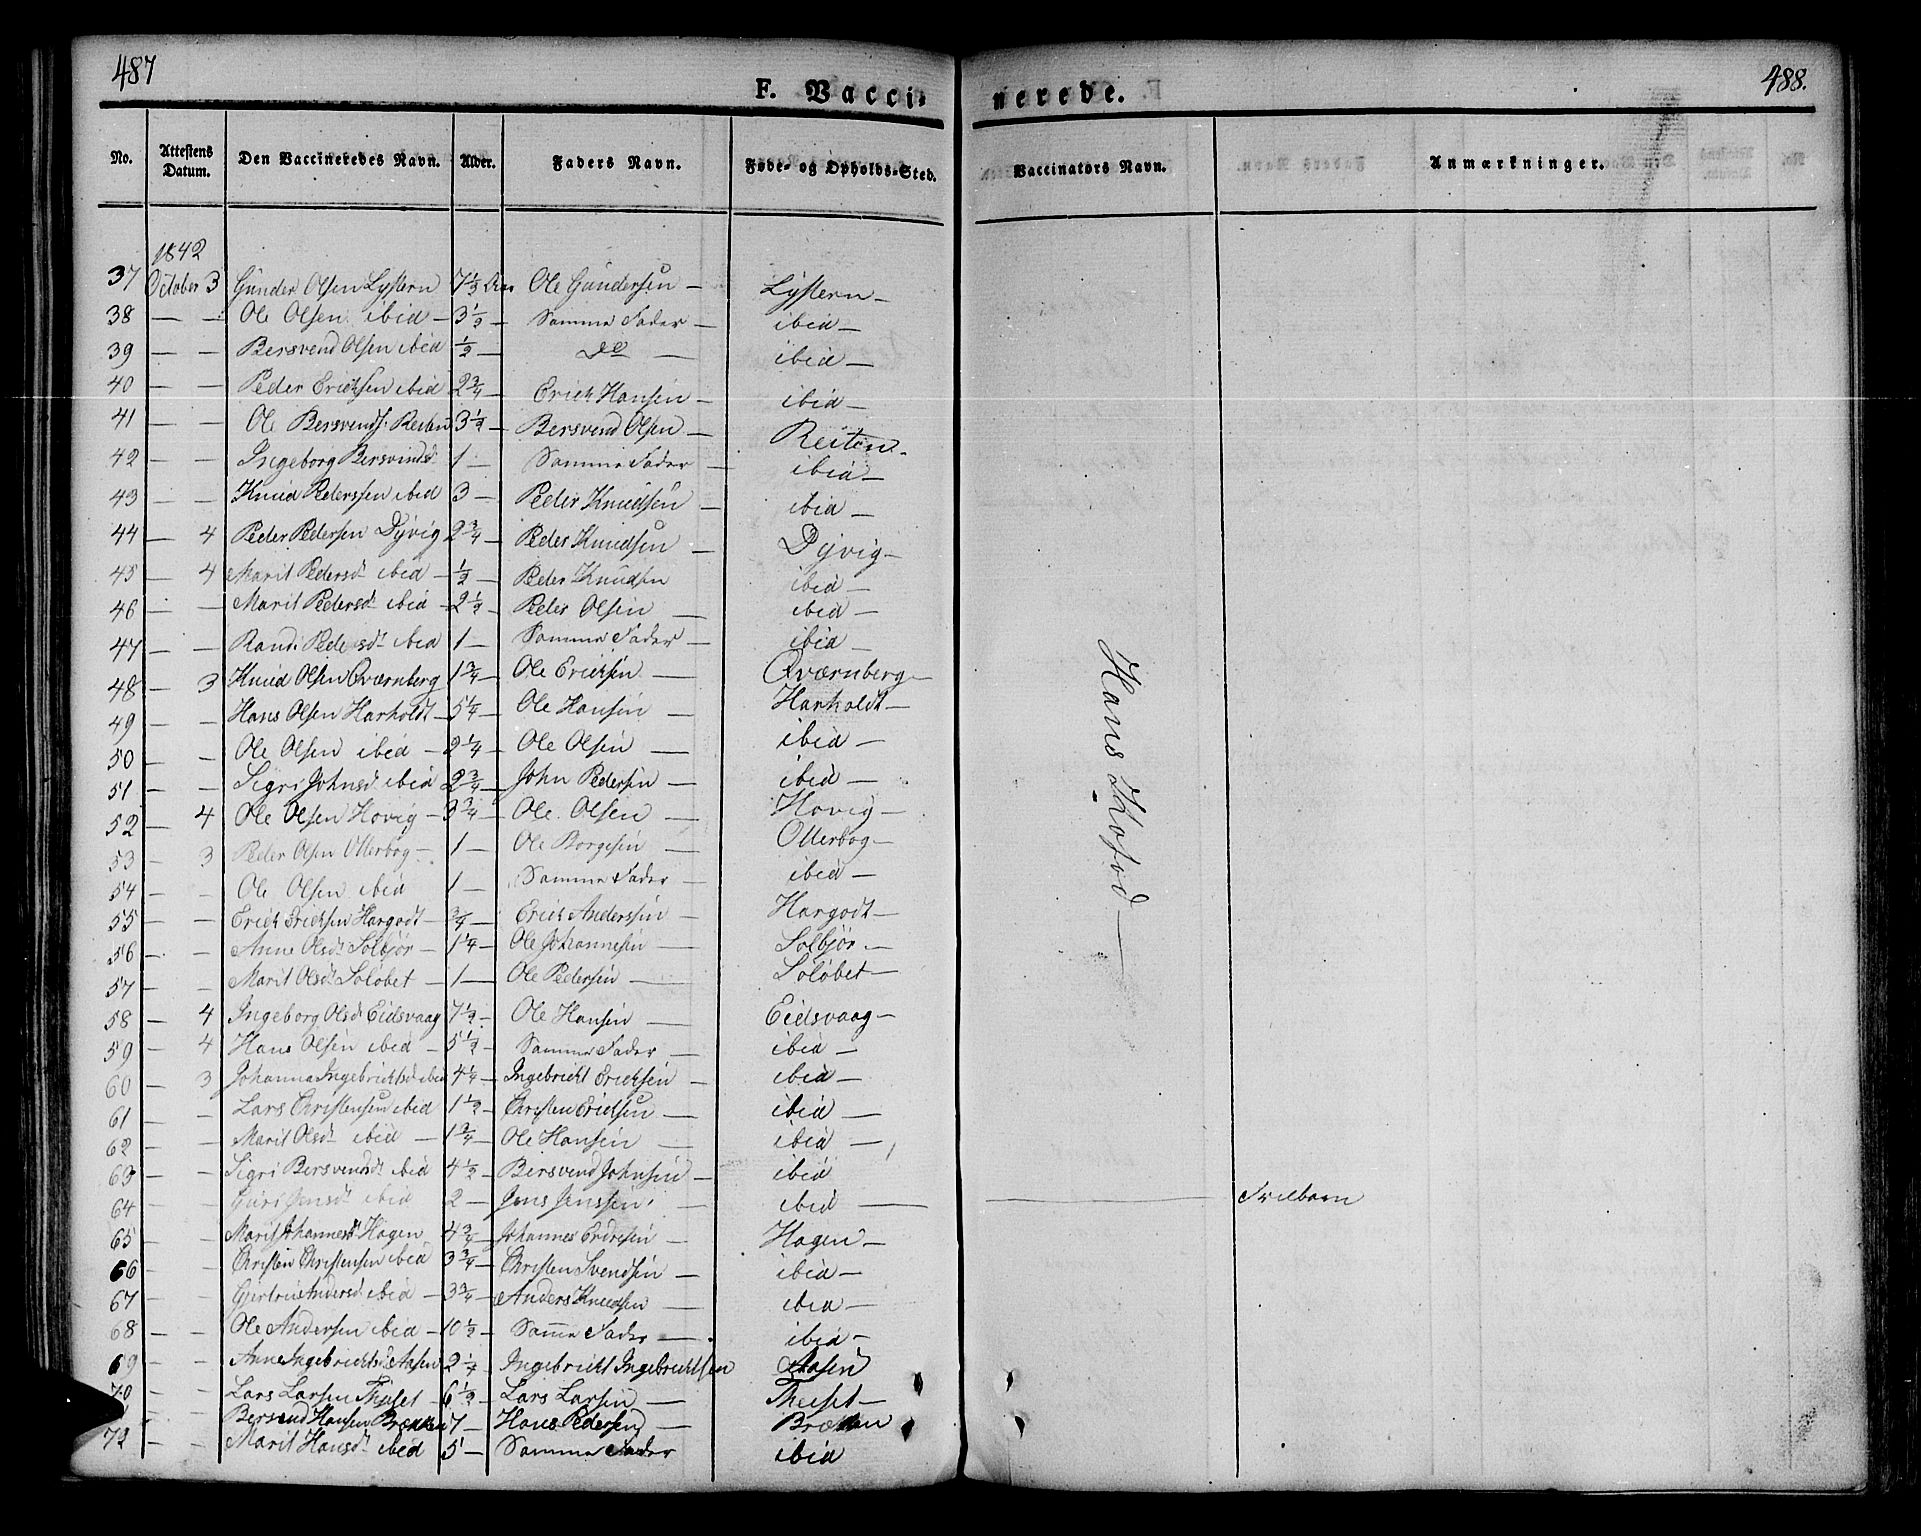 487
F. Vacci- nerede.
488.
No. Attestens Datum. Den Vaccineredes Navn. Alder. Faders Navn. Føde- og Opholds-Sted. Vaccinators Navn. Anmærkninger.
1842
37 October 3 Gunder Olsen Lystern 7 1/2 Ole Gundersen — Lystern —
38 — — Ole Olsen ibid — 3 1/2 — Samme Fader — ibid —
39 — — Bersvend Olsen ibid 1/2 — do — ibid —
40 — — Peder Ericksen ibid 2 3/4 — Erick Hansen — ibid —
41 — — Ole Bersvends: Reiten 3 1/2 — Bersvend Olsen — Reiten —
42 — — Ingeborg Bersvindsd 1 — Samme Fader — ibid —
43 — — Knud Pederssen ibid 3 — Peder Knudsen — ibid —
44 — 4 Peder Pedersen Dyvig 2 3/4 — Peder Knudsen — Dyvig —
45 — 4 Marit Pedersd ibid — 1/2 — Peder Knudsen ibid —
46 — — Marit Pedersd ibid — 2 1/2 — Peder Olsen — ibid —
47 — — Rand: Pedersdt ibid 1 — Samme Fader — ibid —
48 — 3 Knud Olsen Qværnberg 1 3/4 — Ole Ericksen — Qværnberg —
49 — — Hans Olsen Harholdt — 5 1/4 — Ole Hansen — Harholdt —
50 — — Ole Olsen ibid — 2 1/4 — Ole Olsen — ibid —
51 — — Sigri Johnsd ibid 2 3/4 — John Pedersen — ibid —
52 — 4 Ole Olsen Hovig — 3 3/4 — Ole Olsen — Hovig —
53 — 3 Peder Olsen Otterbog — 1 — Ole Borgesen — Otterbog —
54 — — Ole Olsen ibid 1 — Samme Fader — ibid —
55 — — Erick Ericksen Hargodt — 3/4 — Erick Anderssen — Hargodt —
56 — — Anne Olsdt Solbjør — 1 1/4 — Ole Johannesen — Solbjør —
57 — — Marit Olsdt Soløbet — 1 — Ole Pedersen — Soløbet —
58 — 4 Ingeborg Olsd Eidsvaag 7 1/2 — Ole Hansen — Eidsvaag —
59 — 4 Hans Olsen ibid — 5 1/2 — Samme Fader — ibid —
60 — 3 Johanna Ingebrichtsd ibid 4 1/4 — Ingebricht Ericksen — ibid —
61 — — Lars Christensen ibid 1 1/2 — Christen Erichsen — ibid —
62 — — Marit Olsdt ibid — 1 3/4 — Ole Hansen — ibid —
63 — — Sigri Bersvendsdt ibid 4 1/2 — Bersvend Johnsen — ibid
64 — — Guri Jensdt ibid 2 — Jens Jenssen ibid —
65 — — Marit Johannesd Hagen 4 3/4 — Johannes Endresen — Hagen —
66 — — Christen Christensen ibid 3 3/4 — Christen Svendsen — ibid —
67 — — Gjertrud Andersd ibid — 3 3/4 — Anders Knudsen — ibid —
68 — — Ole Andersen ibid — 10 1/2 — Samme Fader — ibid —
69 — — Anne Ingebrichtsd Aasen 2 1/4 — Ingebricht Ingebrichtsen Aasen
70 — — Lars Larsen Thuset 6 1/2 — Lars Larsen — Theset —
— — Bersvend Hansen Brækken 7 — Hans Pedersen — Brækken
72 — — Marit Hansdt ibid 5 — Samme Fader ibid
Hans Kofod —